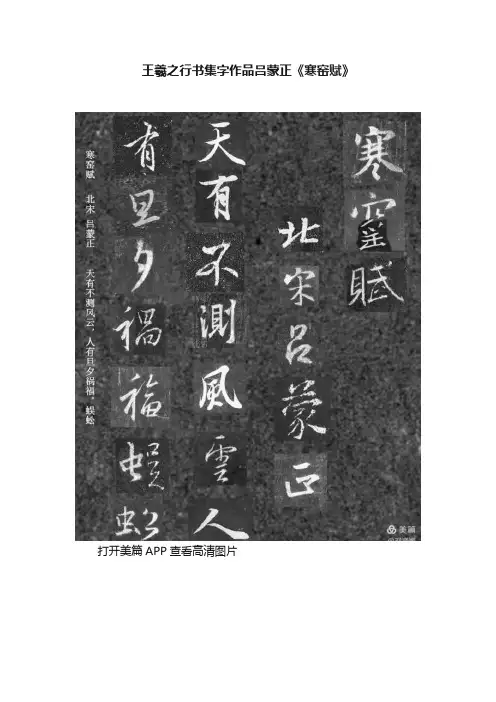 王羲之行书集字作品吕蒙正《寒窑赋》
寒窰賦
北宋吕蒙正
天有不測風雲人
有旦夕禍福蜈蚣
寒窑赋 北宋 吕蒙正 天有不测风云，人有旦夕祸福。蜈蚣
美篇
打开美篇 APP 查看高清图片